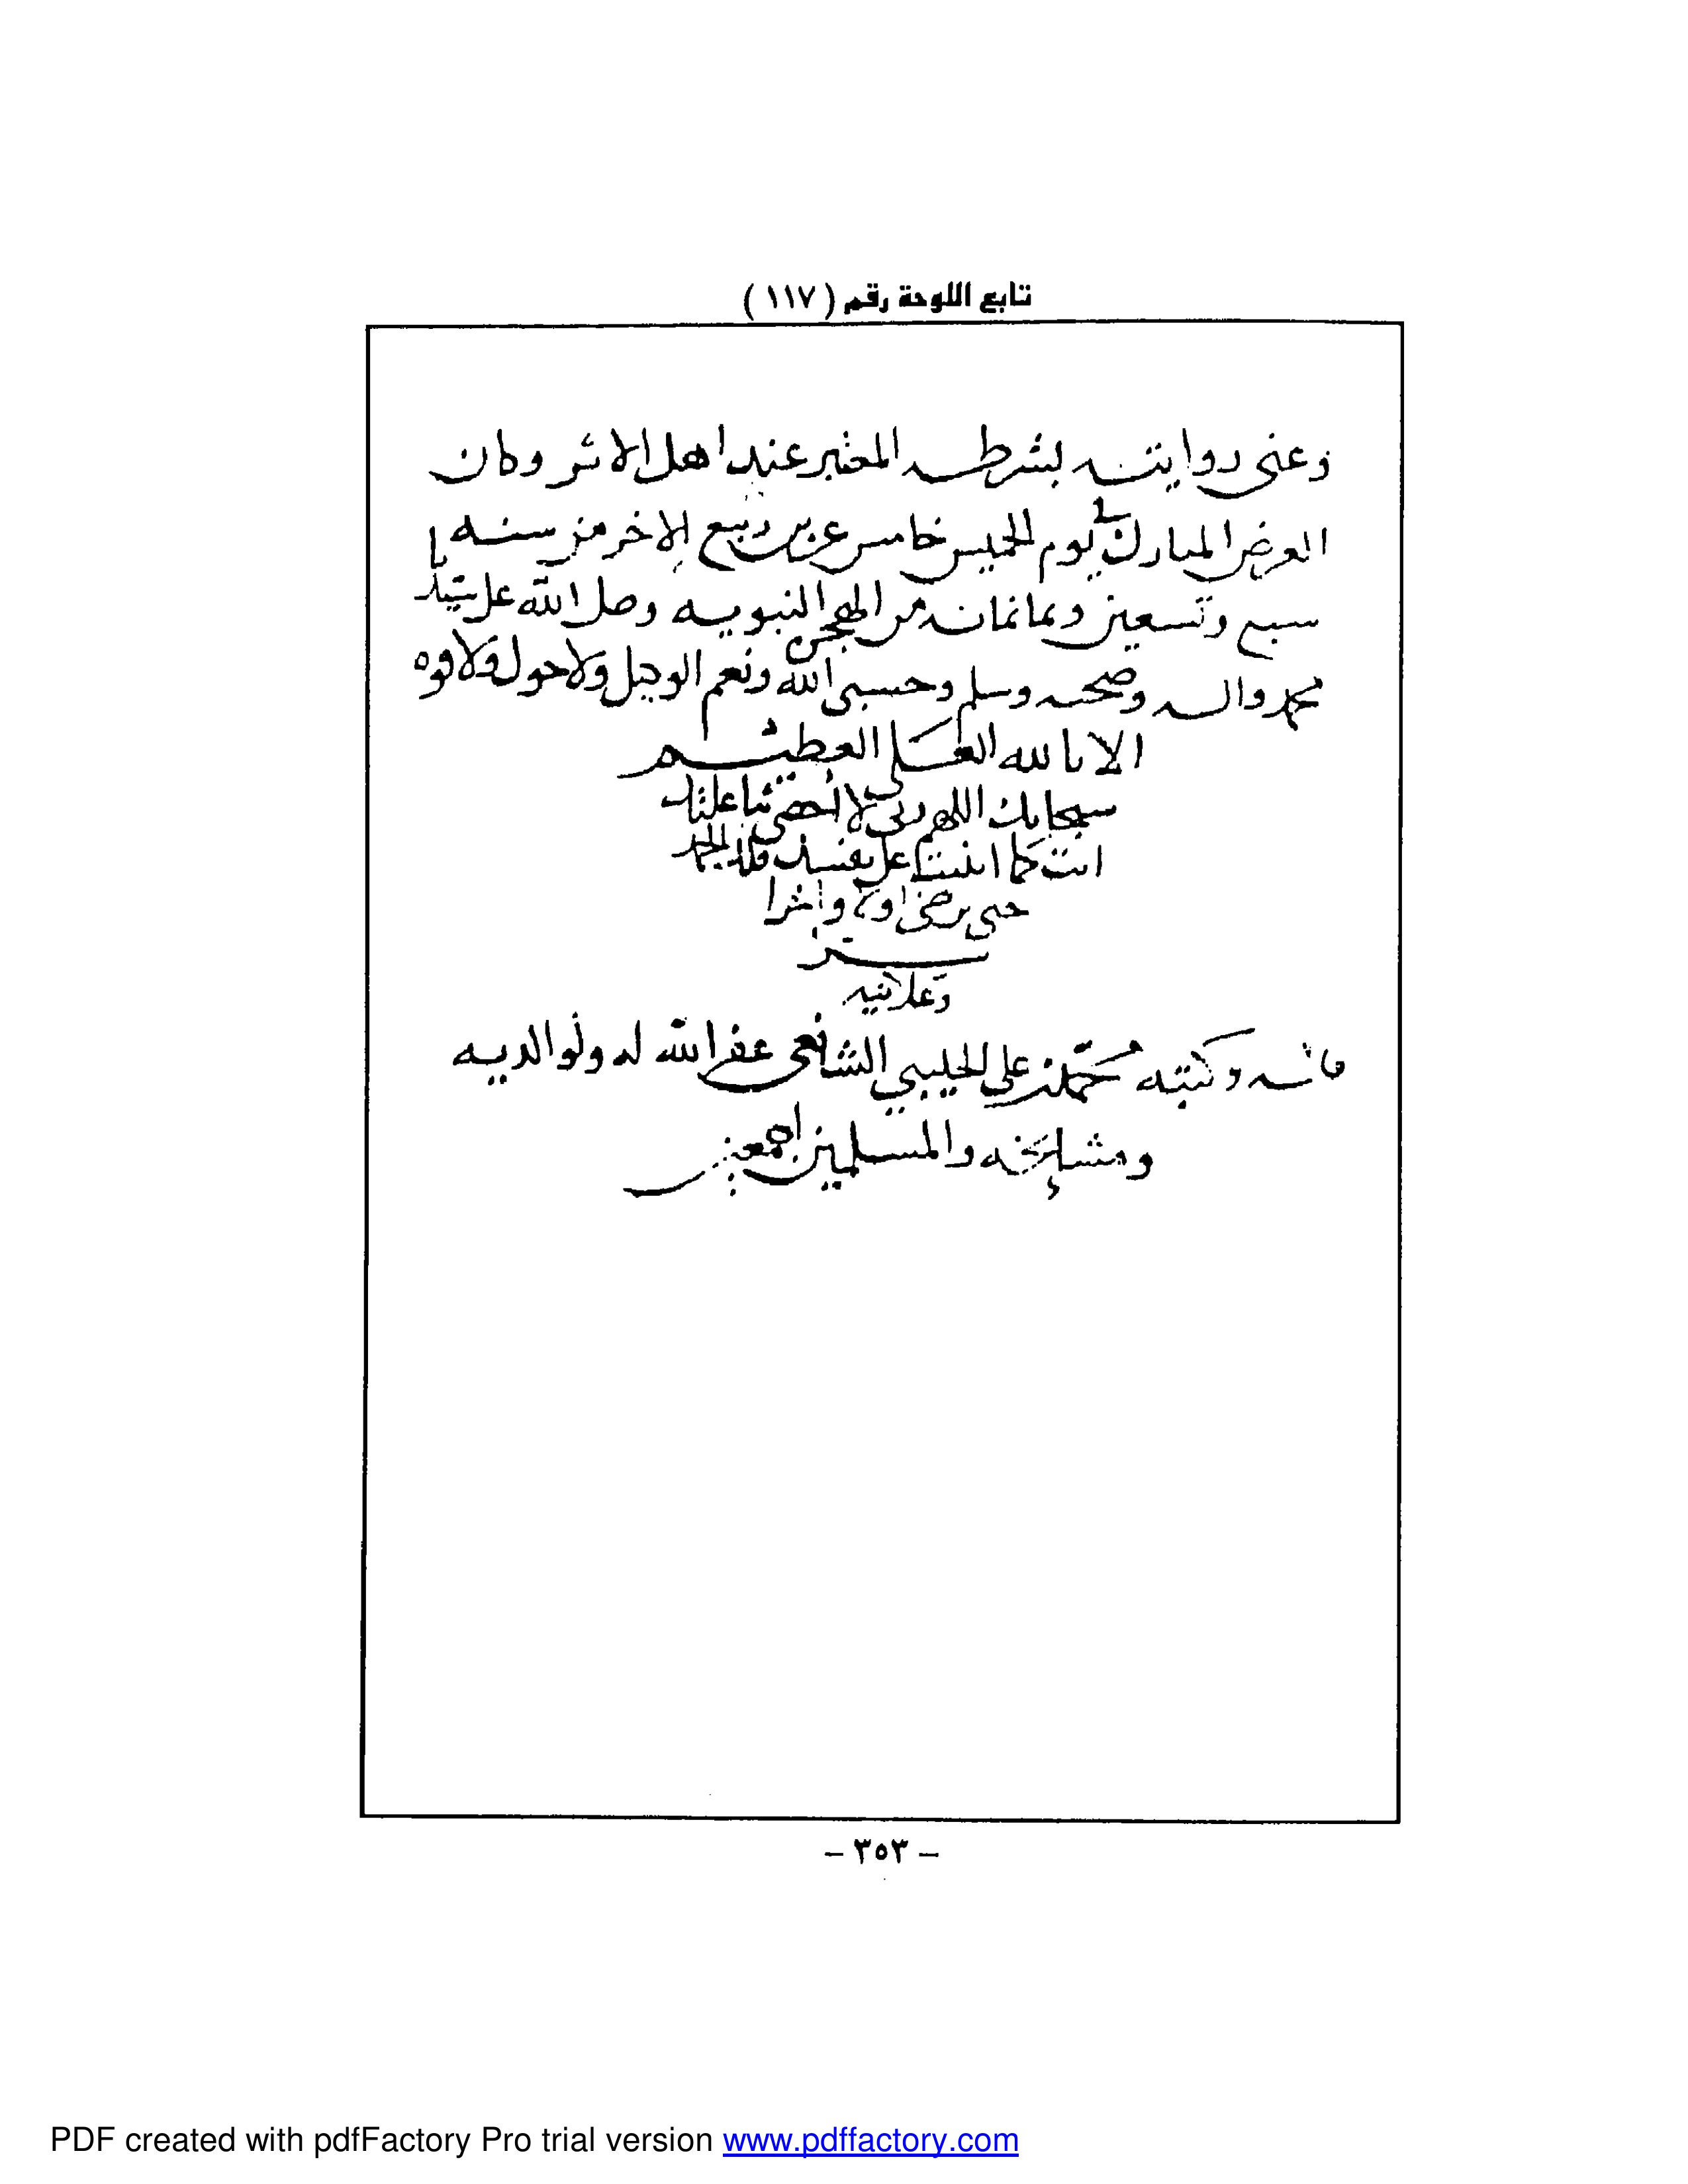 تابع اللوحة رقم ( ١١٧ )
وعنى روايته بشرطه المعتبر عند اهل الاثر وكان
العرض المبارك في يوم الخميس خامس عشرين ربيع الاخر من سنه
سبع وتسعين وثمانمانه من الهجره النبويه وصلى الله على سيدنا
محمد واله وصحبه وسلم وحسبى الله ونعم الوكيل ولا حول ولا قوه
الا بالله العلى العظيم
سبحانك اللهم ربى لا احصى ثنا عليك
انت كما اثنيت على نفسك فلك الحمد
حتى ترضى اولا واخرا
سرا
وعلانيه
قاله وكتبه محمد بن على الحليبي الشافعى غفر الله له ولوالديه
ومشايخه والمسلمين اجمعين
– ٣٥٣ –
PDF created with pdfFactory Pro trial version www.pdffactory.com